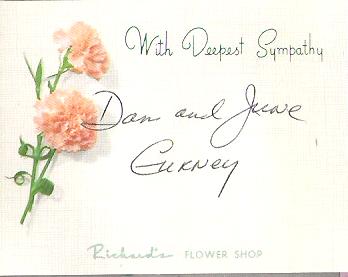 With Deepest Sympathy
Dan and June
Gurney
Richard's FLOWER SHOP